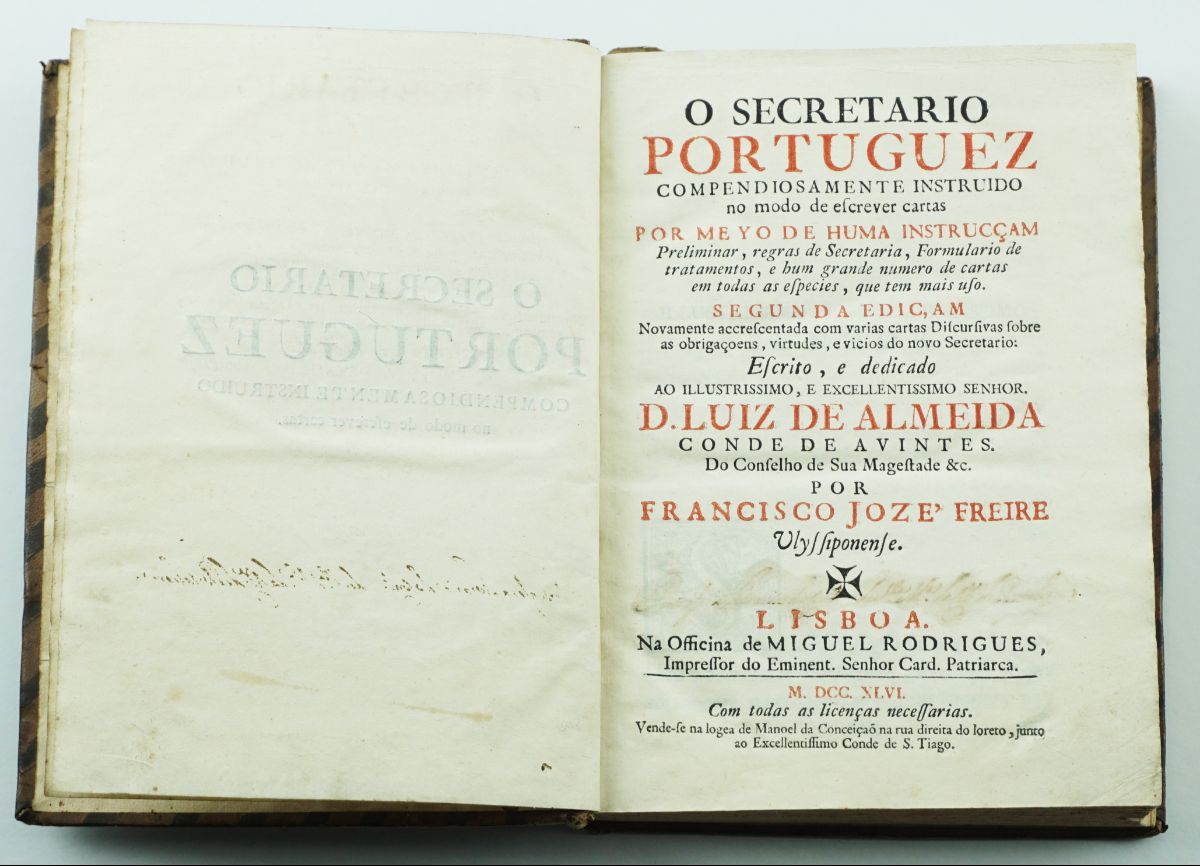 O SECRETARIO
PORTUGUEZ
COMPENDIOSAMENTE INSTRUIDO
no modo de eſcrever cartas
O SECRETARIO
PORTUGUEZ
COMPENDIOSAMENTE INSTRUIDO
no modo de eſcrever cartas
POR MEYO DE HUMA INSTRUCÇAM
Preliminar, regras de Secretaria, Formulario de
tratamentos, e hum grande numero de cartas
em todas as eſpecies, que tem mais uſo.
SEGUNDA EDIC,AM
Novamente accreſcentada com varias cartas Diſcurſivas ſobre
as obrigaçoens, virtudes, e vicios do novo Secretario:
Eſcrito, e dedicado
AO ILLUSTRISSIMO, E EXCELLENTISSIMO SENHOR.
D. LUIZ DE ALMEIDA
CONDE DE AVINTES.
Do Conſelho de Sua Mageſtade &c.
POR
FRANCISCO JOZE' FREIRE
Ulyſſiponenſe.
LISBOA.
Na Officina de MIGUEL RODRIGUES,
Impreſſor do Eminent. Senhor Card. Patriarca.
M. DCC. XLVI.
Com todas as licenças neceſſarias.
Vende-ſe na logea de Manoel da Conceiçaõ na rua direita do loreto, junto
ao Excellentiſſimo Conde de S. Tiago.